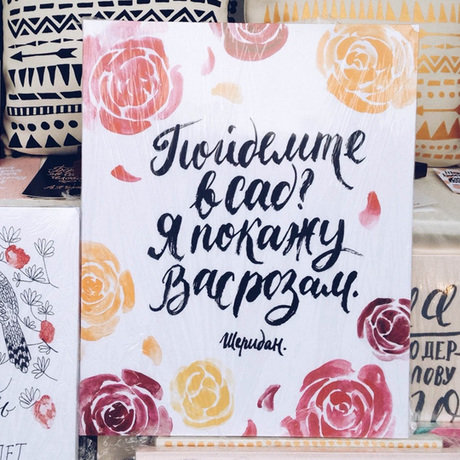 Пойдемте
в сад?
Я покажу
Вас розам.
Шеридан.
а
ОДЕР-
ЛОВУ
ЛЕТ